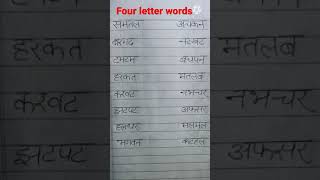 Four letter words
समतल अचकन
बरगद नटखट
टमटम बचपन
हरकत मतलब
करवट नभचर
झटपट अफसर
हलधर मलमल
भगवन कटहल
हरकत मतलब
करवट नभ-चर
झटपट अफसर